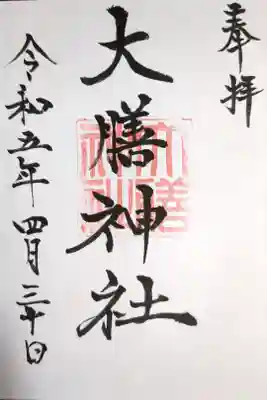 奉拝
大膳神社
令和五年四月三十日